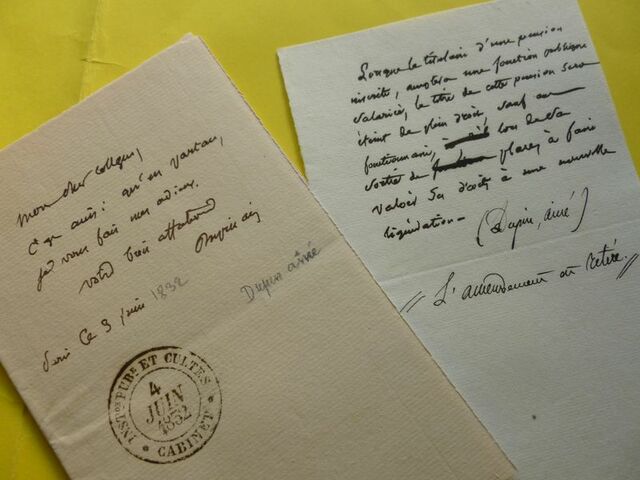 mon cher collègue,
C'est ainsi qu'en partant,
je vous fais mes adieux.
votre bien affectionné
Dupin aîné
Paris Ce 3 juin 1832
Dupin aîné
INST^ON PUB^E ET CULTES
4
JUIN
1832
* CABINET *
Lorsque le titulaire d'une pension
inscrite, acceptera une fonction publique
salariée, le titre de cette pension sera
éteint de plein droit, sauf au
fonctionnaire, lors de sa
sortie de place, à faire
valoir ses droits à une nouvelle
liquidation -
(Dupin, aîné)
// L'amendement est retiré. //